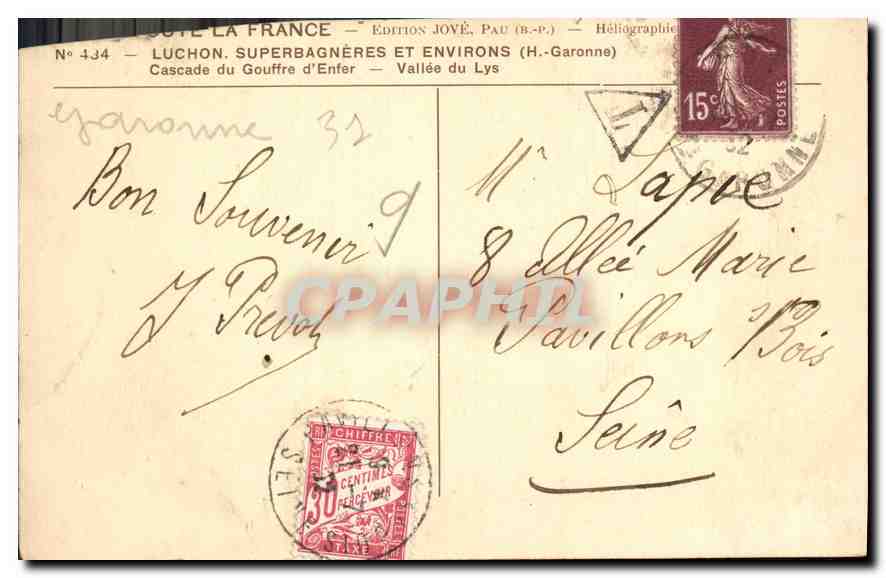 OUTE LA FRANCE — EDITION JOVÉ, PAU (B.-P.) — Héliographie
N° 434 — LUCHON. SUPERBAGNÈRES ET ENVIRONS (H.-Garonne)
Cascade du Gouffre d'Enfer — Vallée du Lys
garonne 31
9
Bon Souvenir
J Prevot
Mr Lapie
8 Allée Marie
Pavillons s/ Bois
Seine
15c
POSTES
T
32
GARONNE
CPAPHIL
CHIFFRE
POSTES
30
CENTIMES
A
PERCEVOIR
TAXE